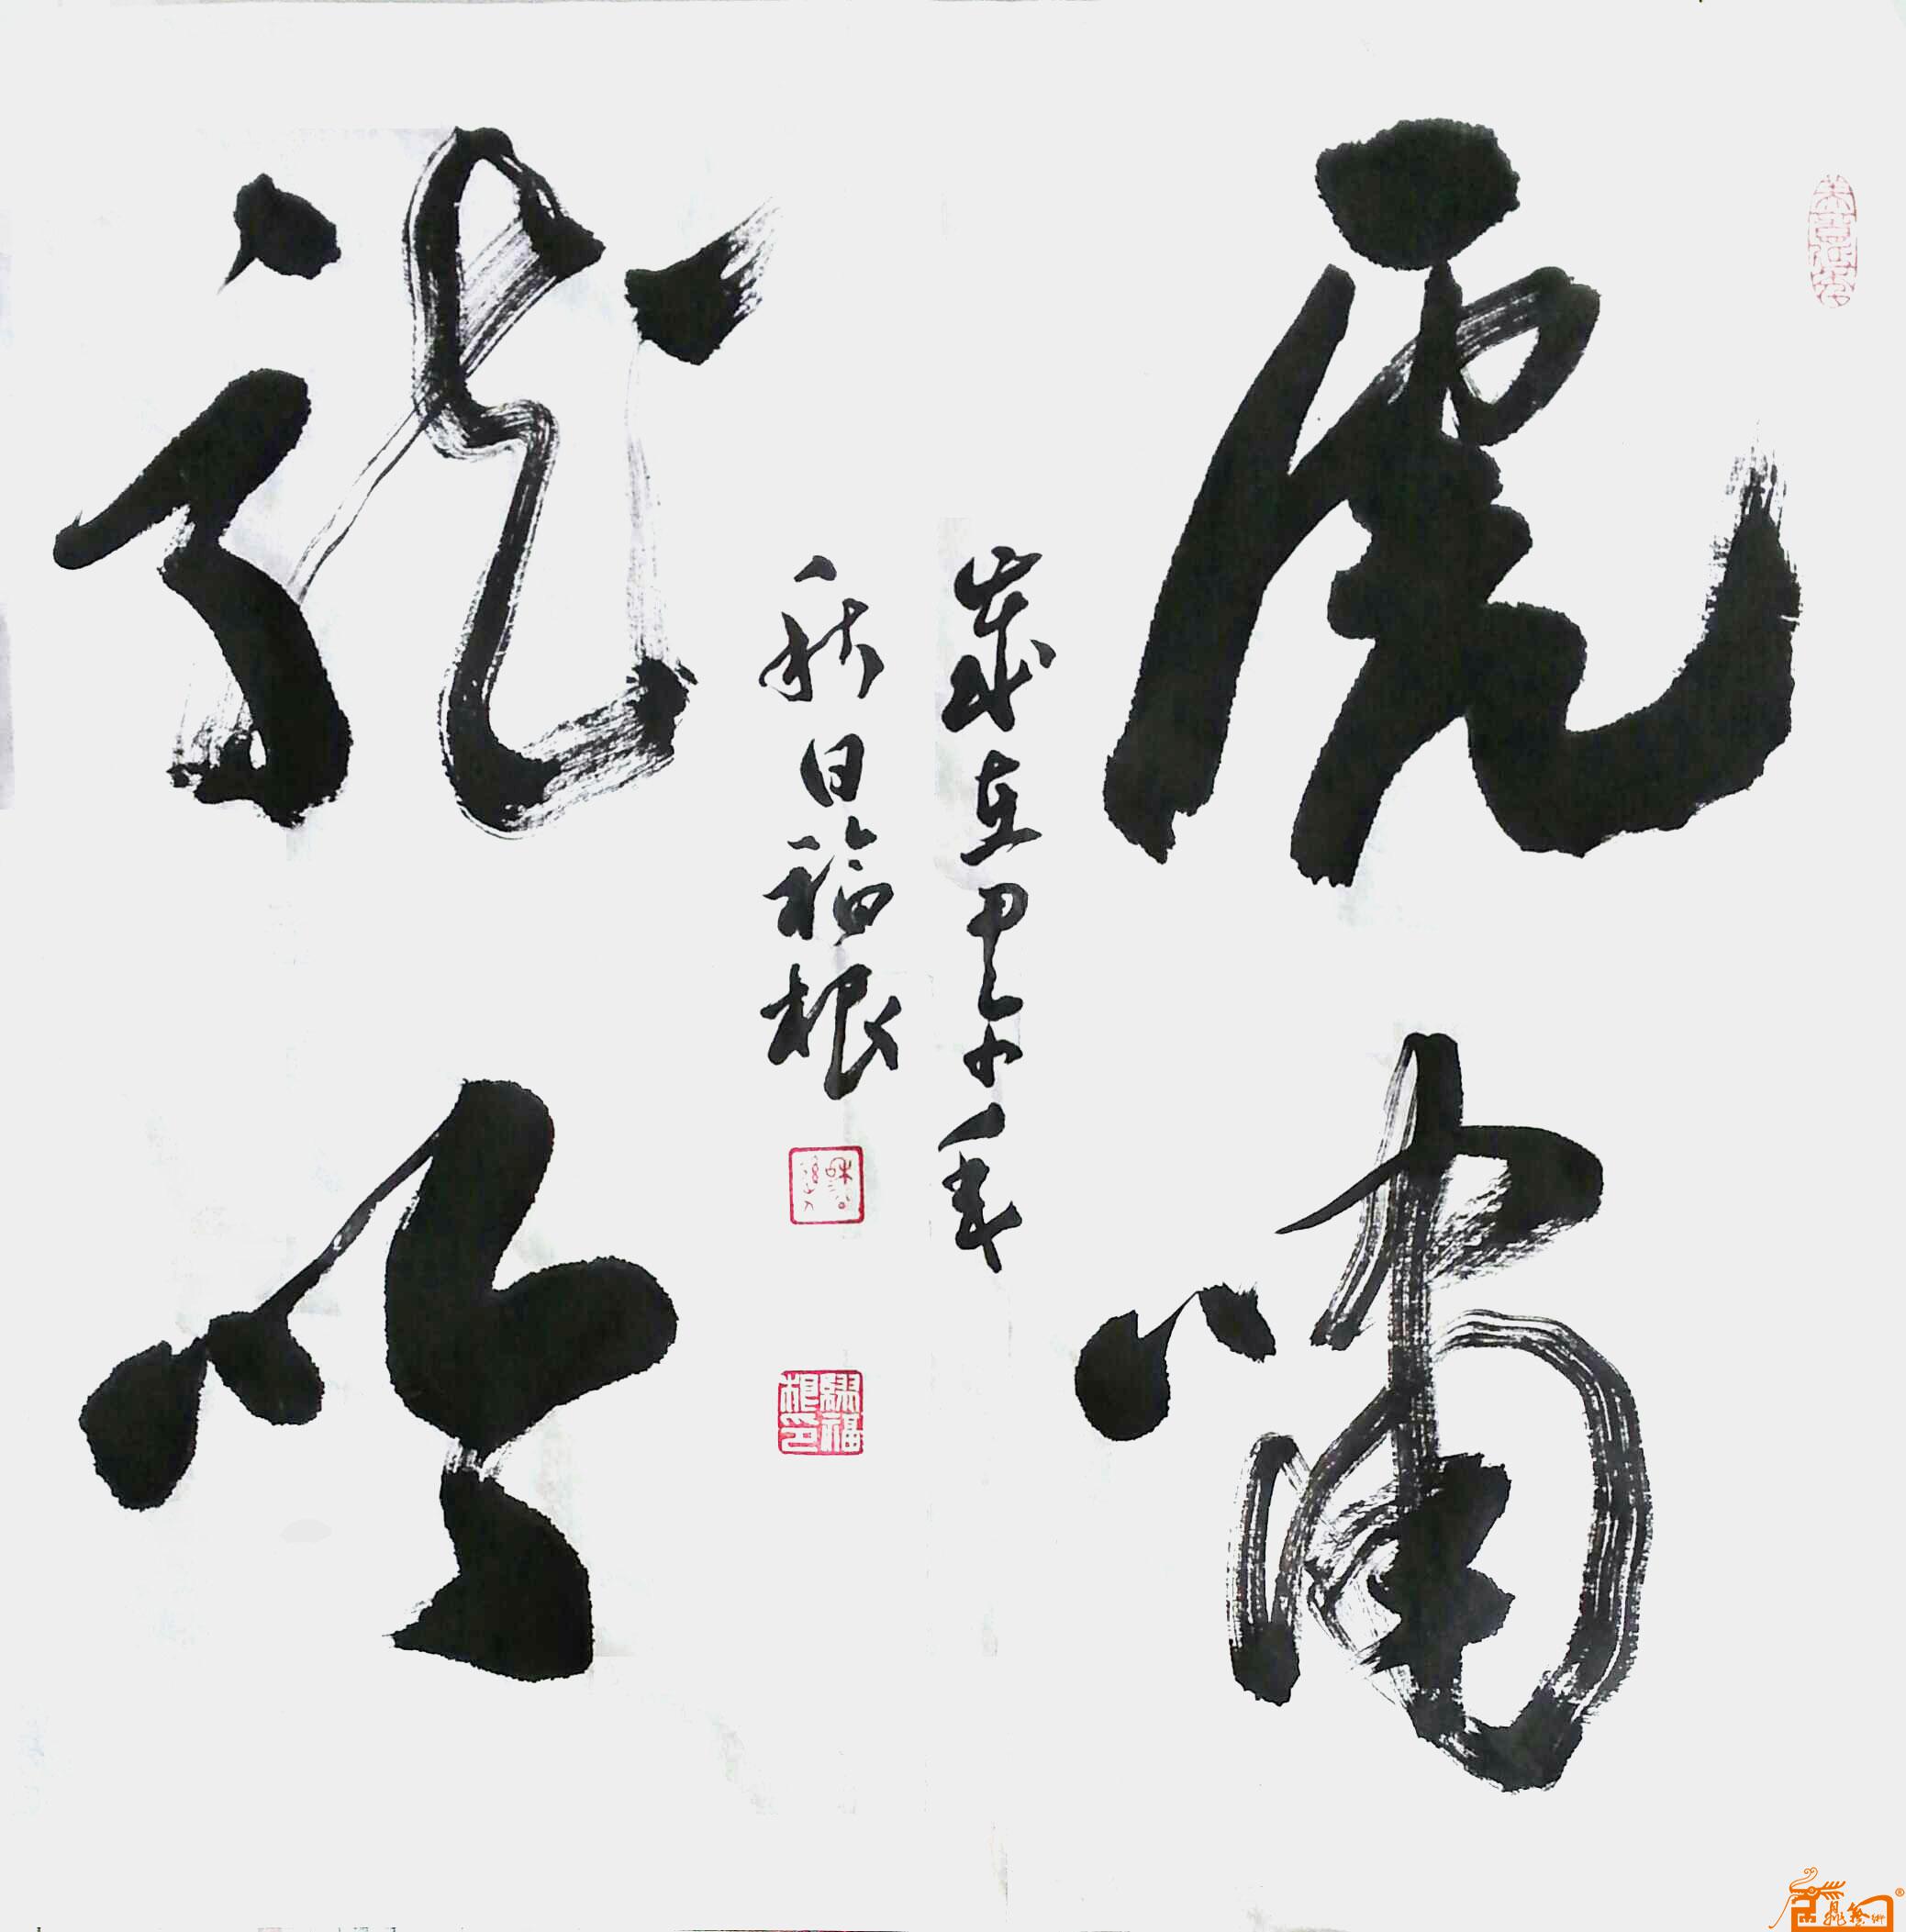 虎啸
龙吟
岁在甲午年
秋日福根
福根印